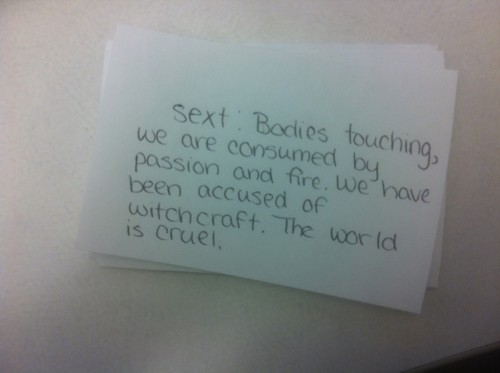 sext: Bodies touching,
we are consumed by
passion and fire. We have
been accused of
witchcraft. The world
is cruel.